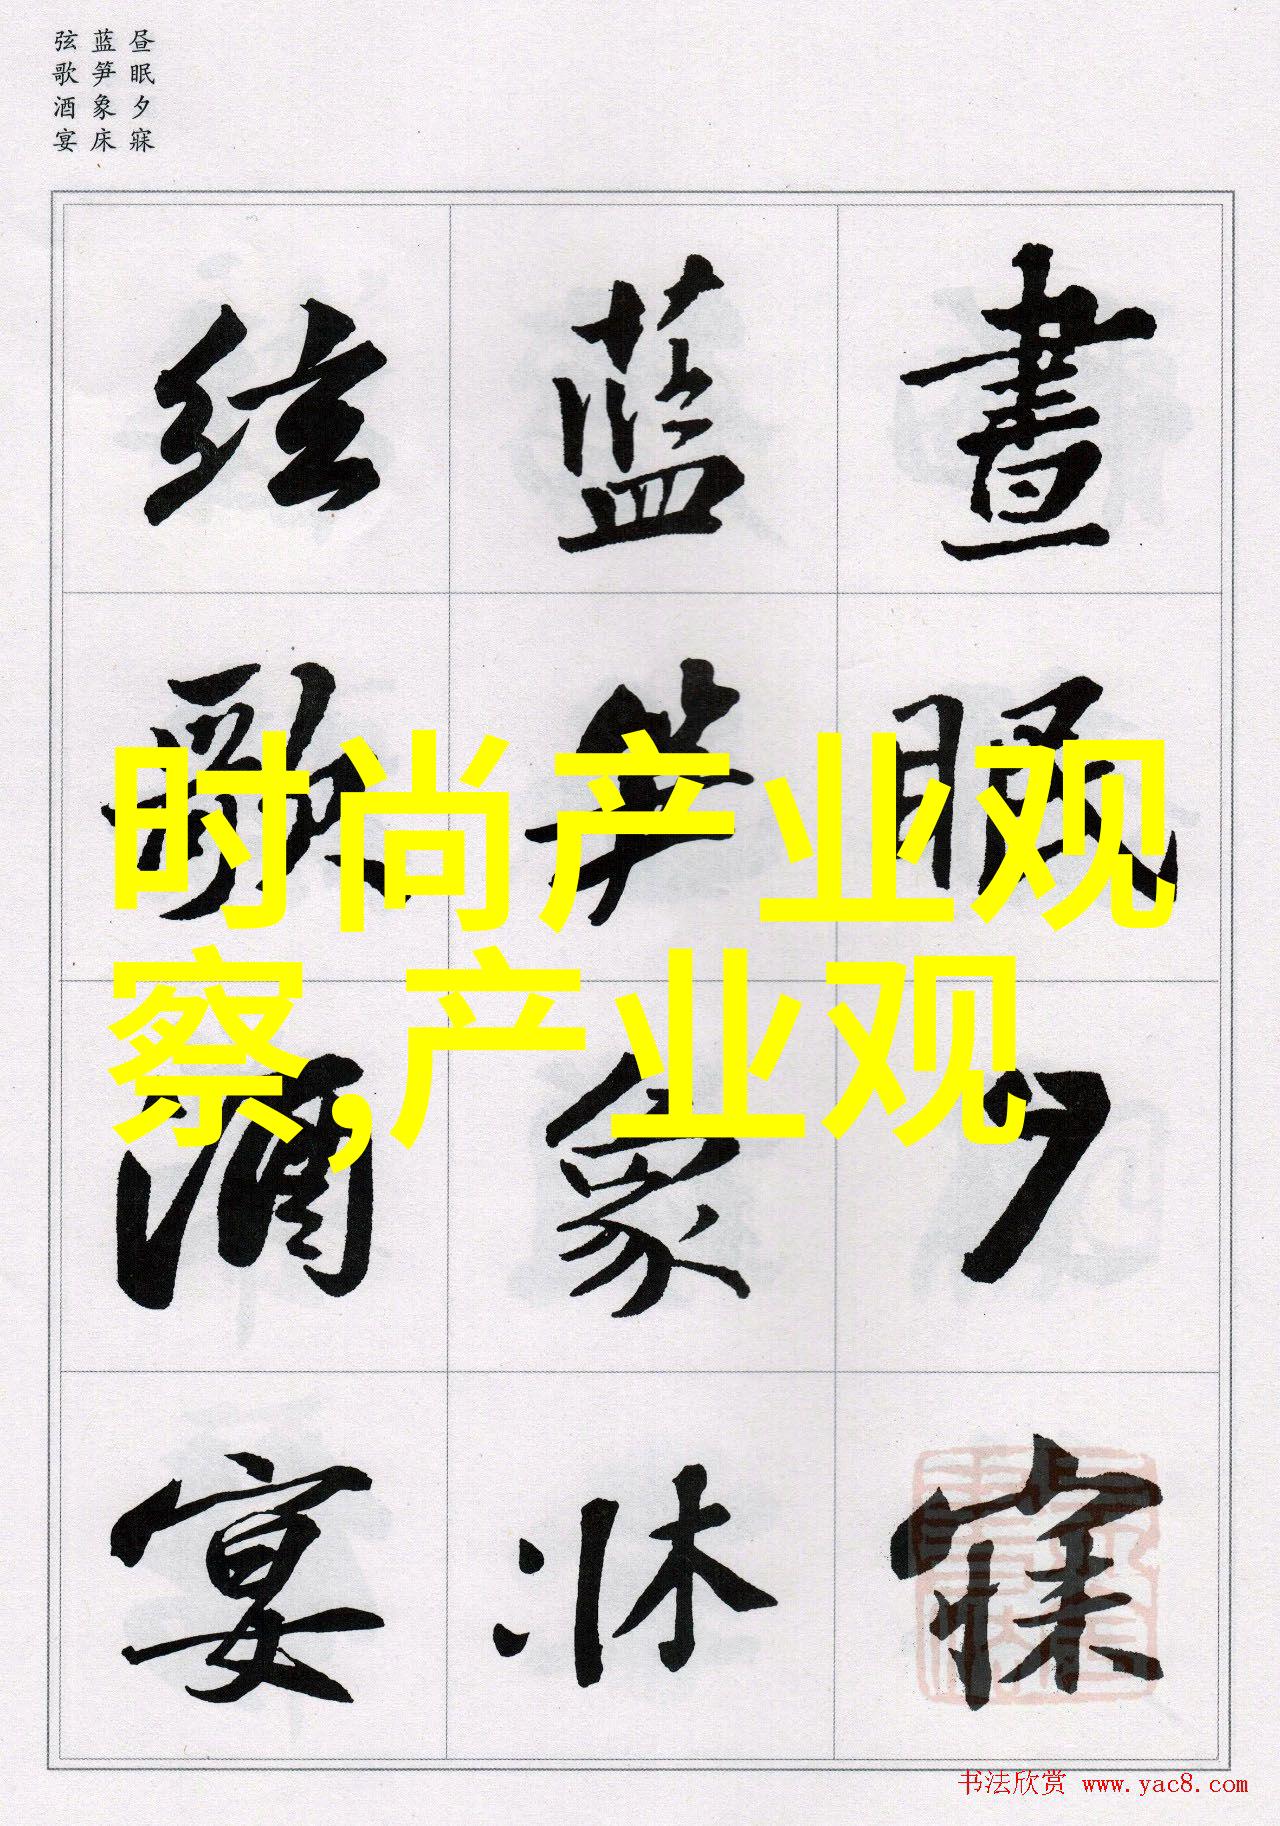 昼眠夕寐
蓝笋象床
弦歌酒宴
晝眠夕寐
藍笋象牀
絃歌酒宴
时尚产业观
察,产业观
书法欣赏 www.yac8.com